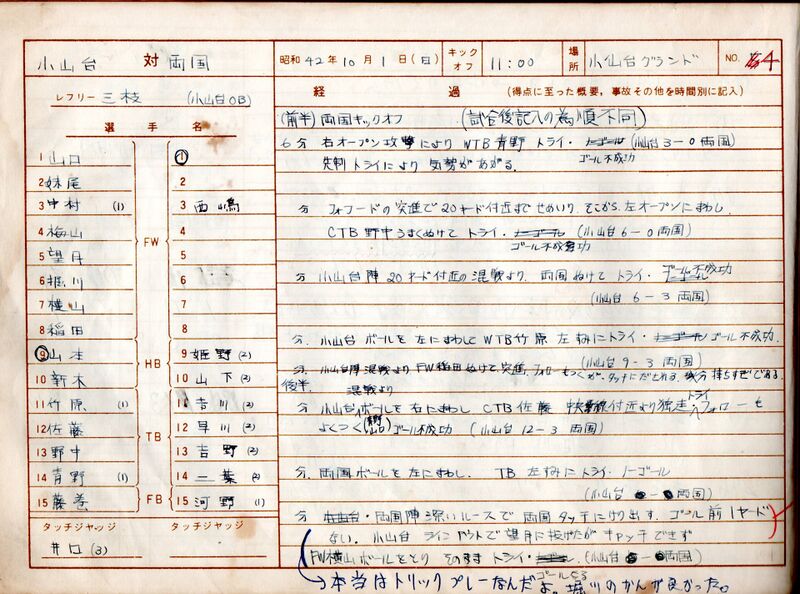 小山台 対 両国 昭和 42年 10月 1日(日) キックオフ 11:00 場所 小山台グランド NO. 4
レフリー 三枝 (小山台OB)
経 過 (得点に至った概要,事故その他を時間別に記入)
選手名
(前半) 両国キックオフ (試合後記入の為順不同)
1 山口 ①
2 妹尾 2
3 中村 (1) 3 西嶋
4 梅山 FW 4
5 望月 5
6 堀川 6
7 横山 7
8 稲田 8
⑨ 山本 HB 9 姫野 (2)
10 新木 10 山下 (2)
11 竹原 (1) 11 吉川 (2)
12 佐藤 TB 12 早川 (2)
13 野中 13 吉野 (2)
14 青野 (1) 14 二葉 (2)
15 藤巻 FB 15 河野 (1)
タッチジャッジ タッチジャッジ
井口 (3)
6分 右オープン攻撃により WTB青野トライ・ゴール不成功 (小山台3-0両国)
先制トライにより 気勢があがる.
分 フォワードの突進で20ヤード付近までせめいり、そこから左オープンにまわし
CTB野中うまくぬけてトライ・ゴール不成功 (小山台6-0両国)
分 小山台陣20ヤード付近の混戦より、両国ぬけてトライ・ゴール不成功
(小山台 6-3 両国)
分 小山台ボールを左にまわして WTB竹原左すみにトライ・ゴール不成功.
(小山台 9-3 両国)
分 小山台陣混戦より FW稲田ぬけて突進、フォローもつくが、タッチにだされる.
後半. 混戦より
分 小山台ボールを右にまわし CTB佐藤 付近より独走・トライ フォローも
よくつく ゴール不成功 (小山台12-3両国)
分 両国ボールを左にまわし TB 左すみにトライ・ノーゴール
(小山台 - 両国)
分 両国陣深いルースで両国タッチにけり出す. ゴール前1ヤード
ない. 小山台ラインアウトで望月に投げたがキャッチできず
FW横山ボールをとり そのままトライ・ (小山台 - 両国)
→本当はトリックプレーなんだよ。堀川のかんが良かった。